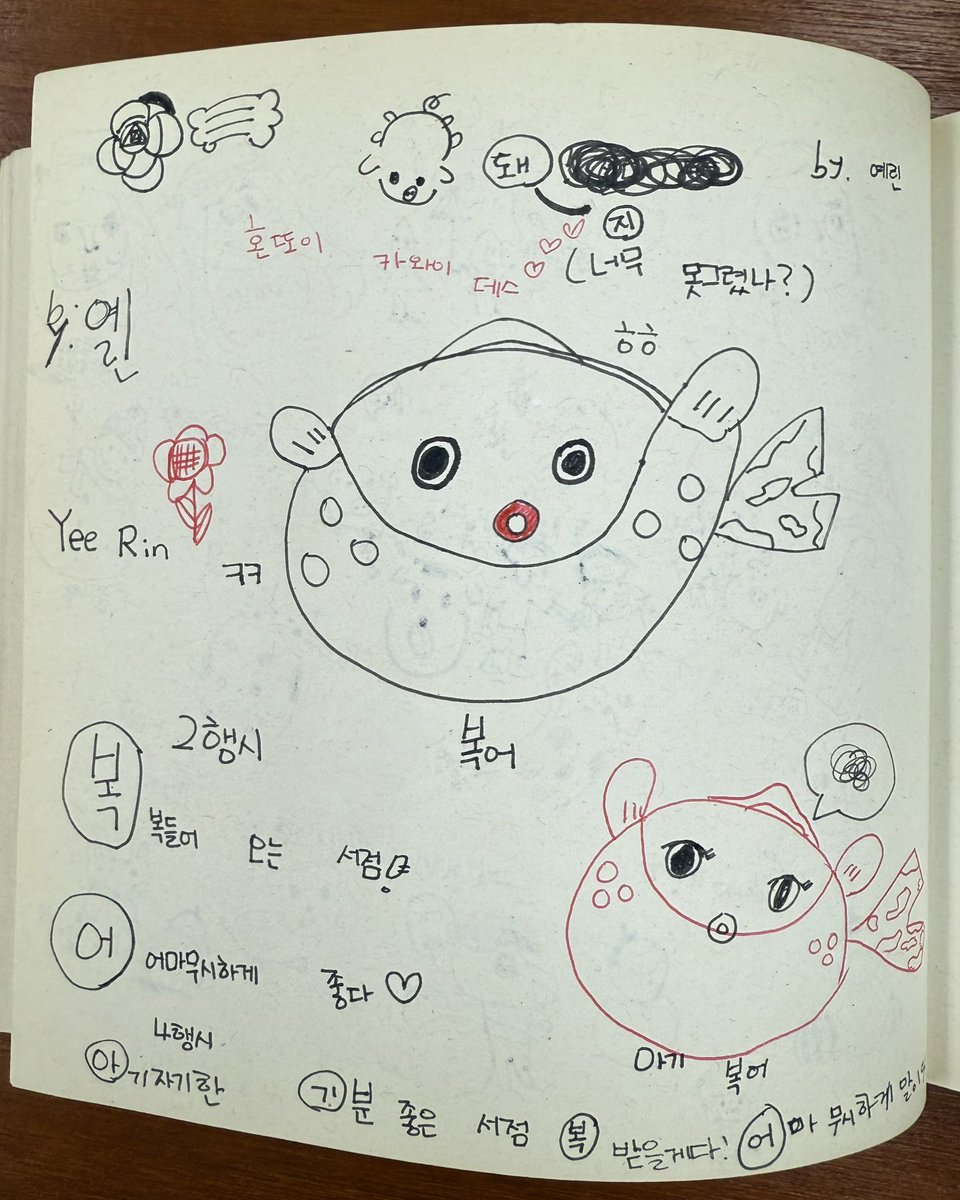 돼
by. 예린
지
혼또이 카와이 데스
(너무 못그렸나?)
by. 옐린
ㅎㅎ
Yee Rin
ㅋㅋ
복어
2행시
복 복들어 오는 서점
어 어마무시하게 좋다
아기 복어
4행시
아기자기한 기분 좋은 서점 복 받을게다! 어마 무시하게 많이